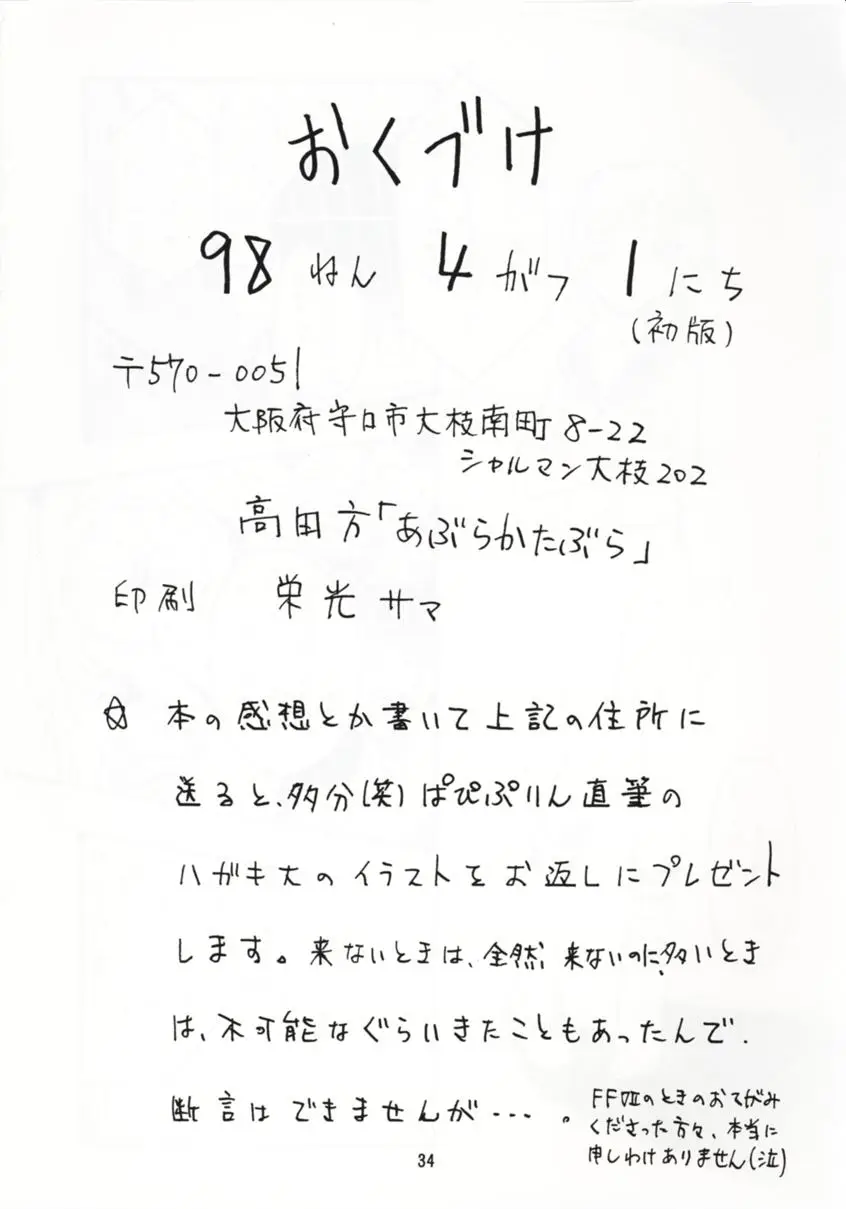 おくづけ
98ねん 4がつ 1にち
(初版)
〒570-0051
大阪府守口市大枝南町8-22
シャルマン大枝202
高田方「あぶらかたぶら」
印刷 栄光サマ
☆ 本の感想とか書いて上記の住所に
送ると、多分(笑)ぱぴぷりん直筆の
ハガキ大のイラストをお返しにプレゼント
します。来ないときは、全然来ないのに、多いとき
は、不可能なぐらいきたこともあったんで、
断言はできませんが・・・。
FFⅦのときのおてがみ
くださった方々、本当に
申しわけありません(泣)
34